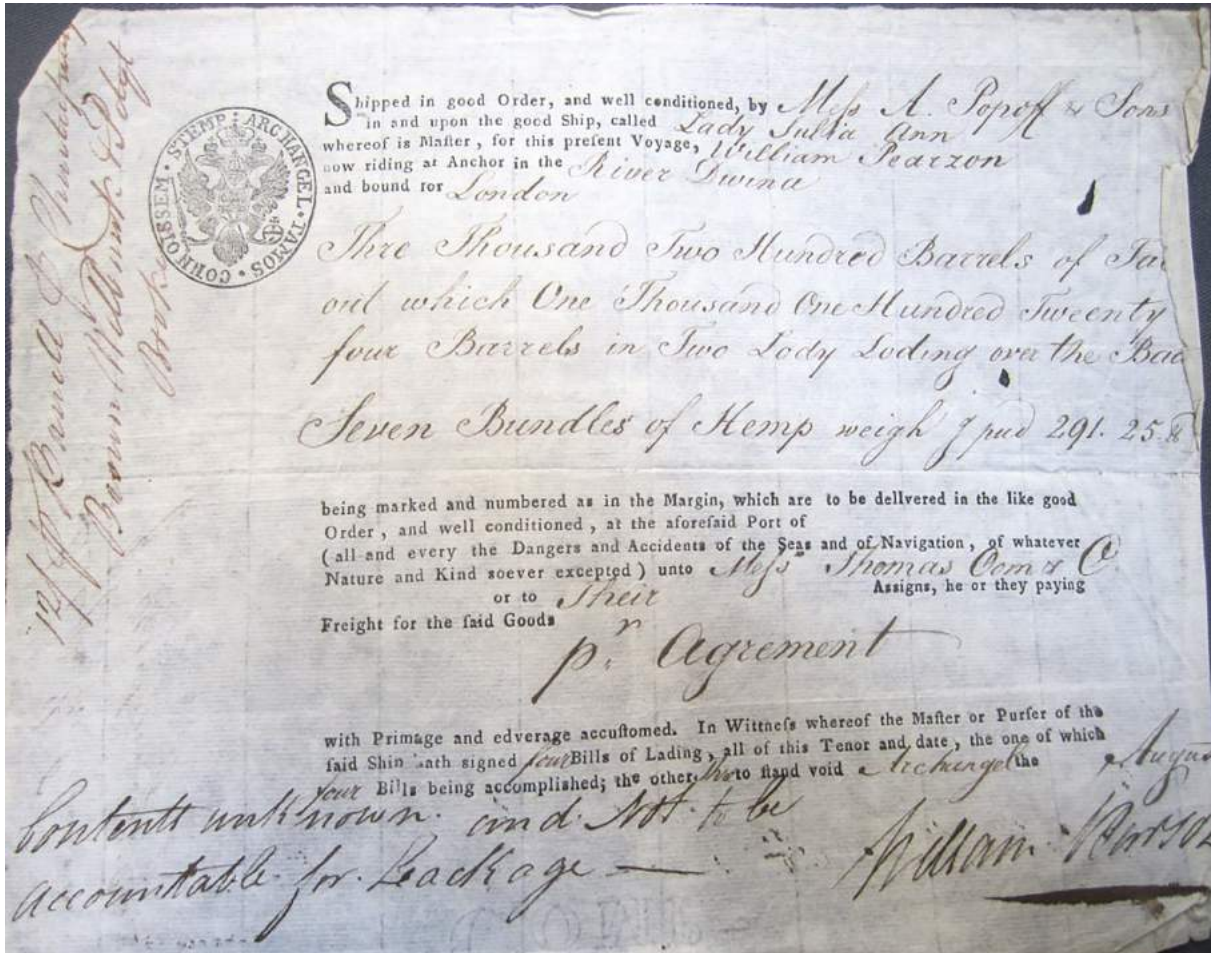 CORNOISSEM · STEMP · ARCHANGEL · TAMOS ·
Shipped in good Order, and well conditioned, by Mess A. Popoff & Sons
in and upon the good Ship, called Lady Julia Ann
whereof is Maſter, for this preſent Voyage, William Pearzon
now riding at Anchor in the River Dwina
and bound ror London
Thre Thousand Two Hundred Barrels of
out which One Thousand One Hundred Tweenty
four Barrels in Two Lody Loding over the
Seven Bundles of Hemp weigh pud 291. 25
being marked and numbered as in the Margin, which are to be dellvered in the like good
Order, and well conditioned, at the aforeſaid Port of
(all and every the Dangers and Accidents of the Seas and of Navigation, of whatever
Nature and Kind soever excepted) unto Mess Thomas Oom & Co
or to Their Assigns, he or they paying
Freight for the ſaid Goods
pr Agrement
with Primage and edverage accuſtomed. In Wittneſs whereof the Maſter or Purſer of the
ſaid Ship hath signed four Bills of Lading, all of this Tenor and date, the one of which
four Bills being accomplished; the other to ſtand void Archangel the
Contents unknown. and Not to be
accountable for Leackage —
William